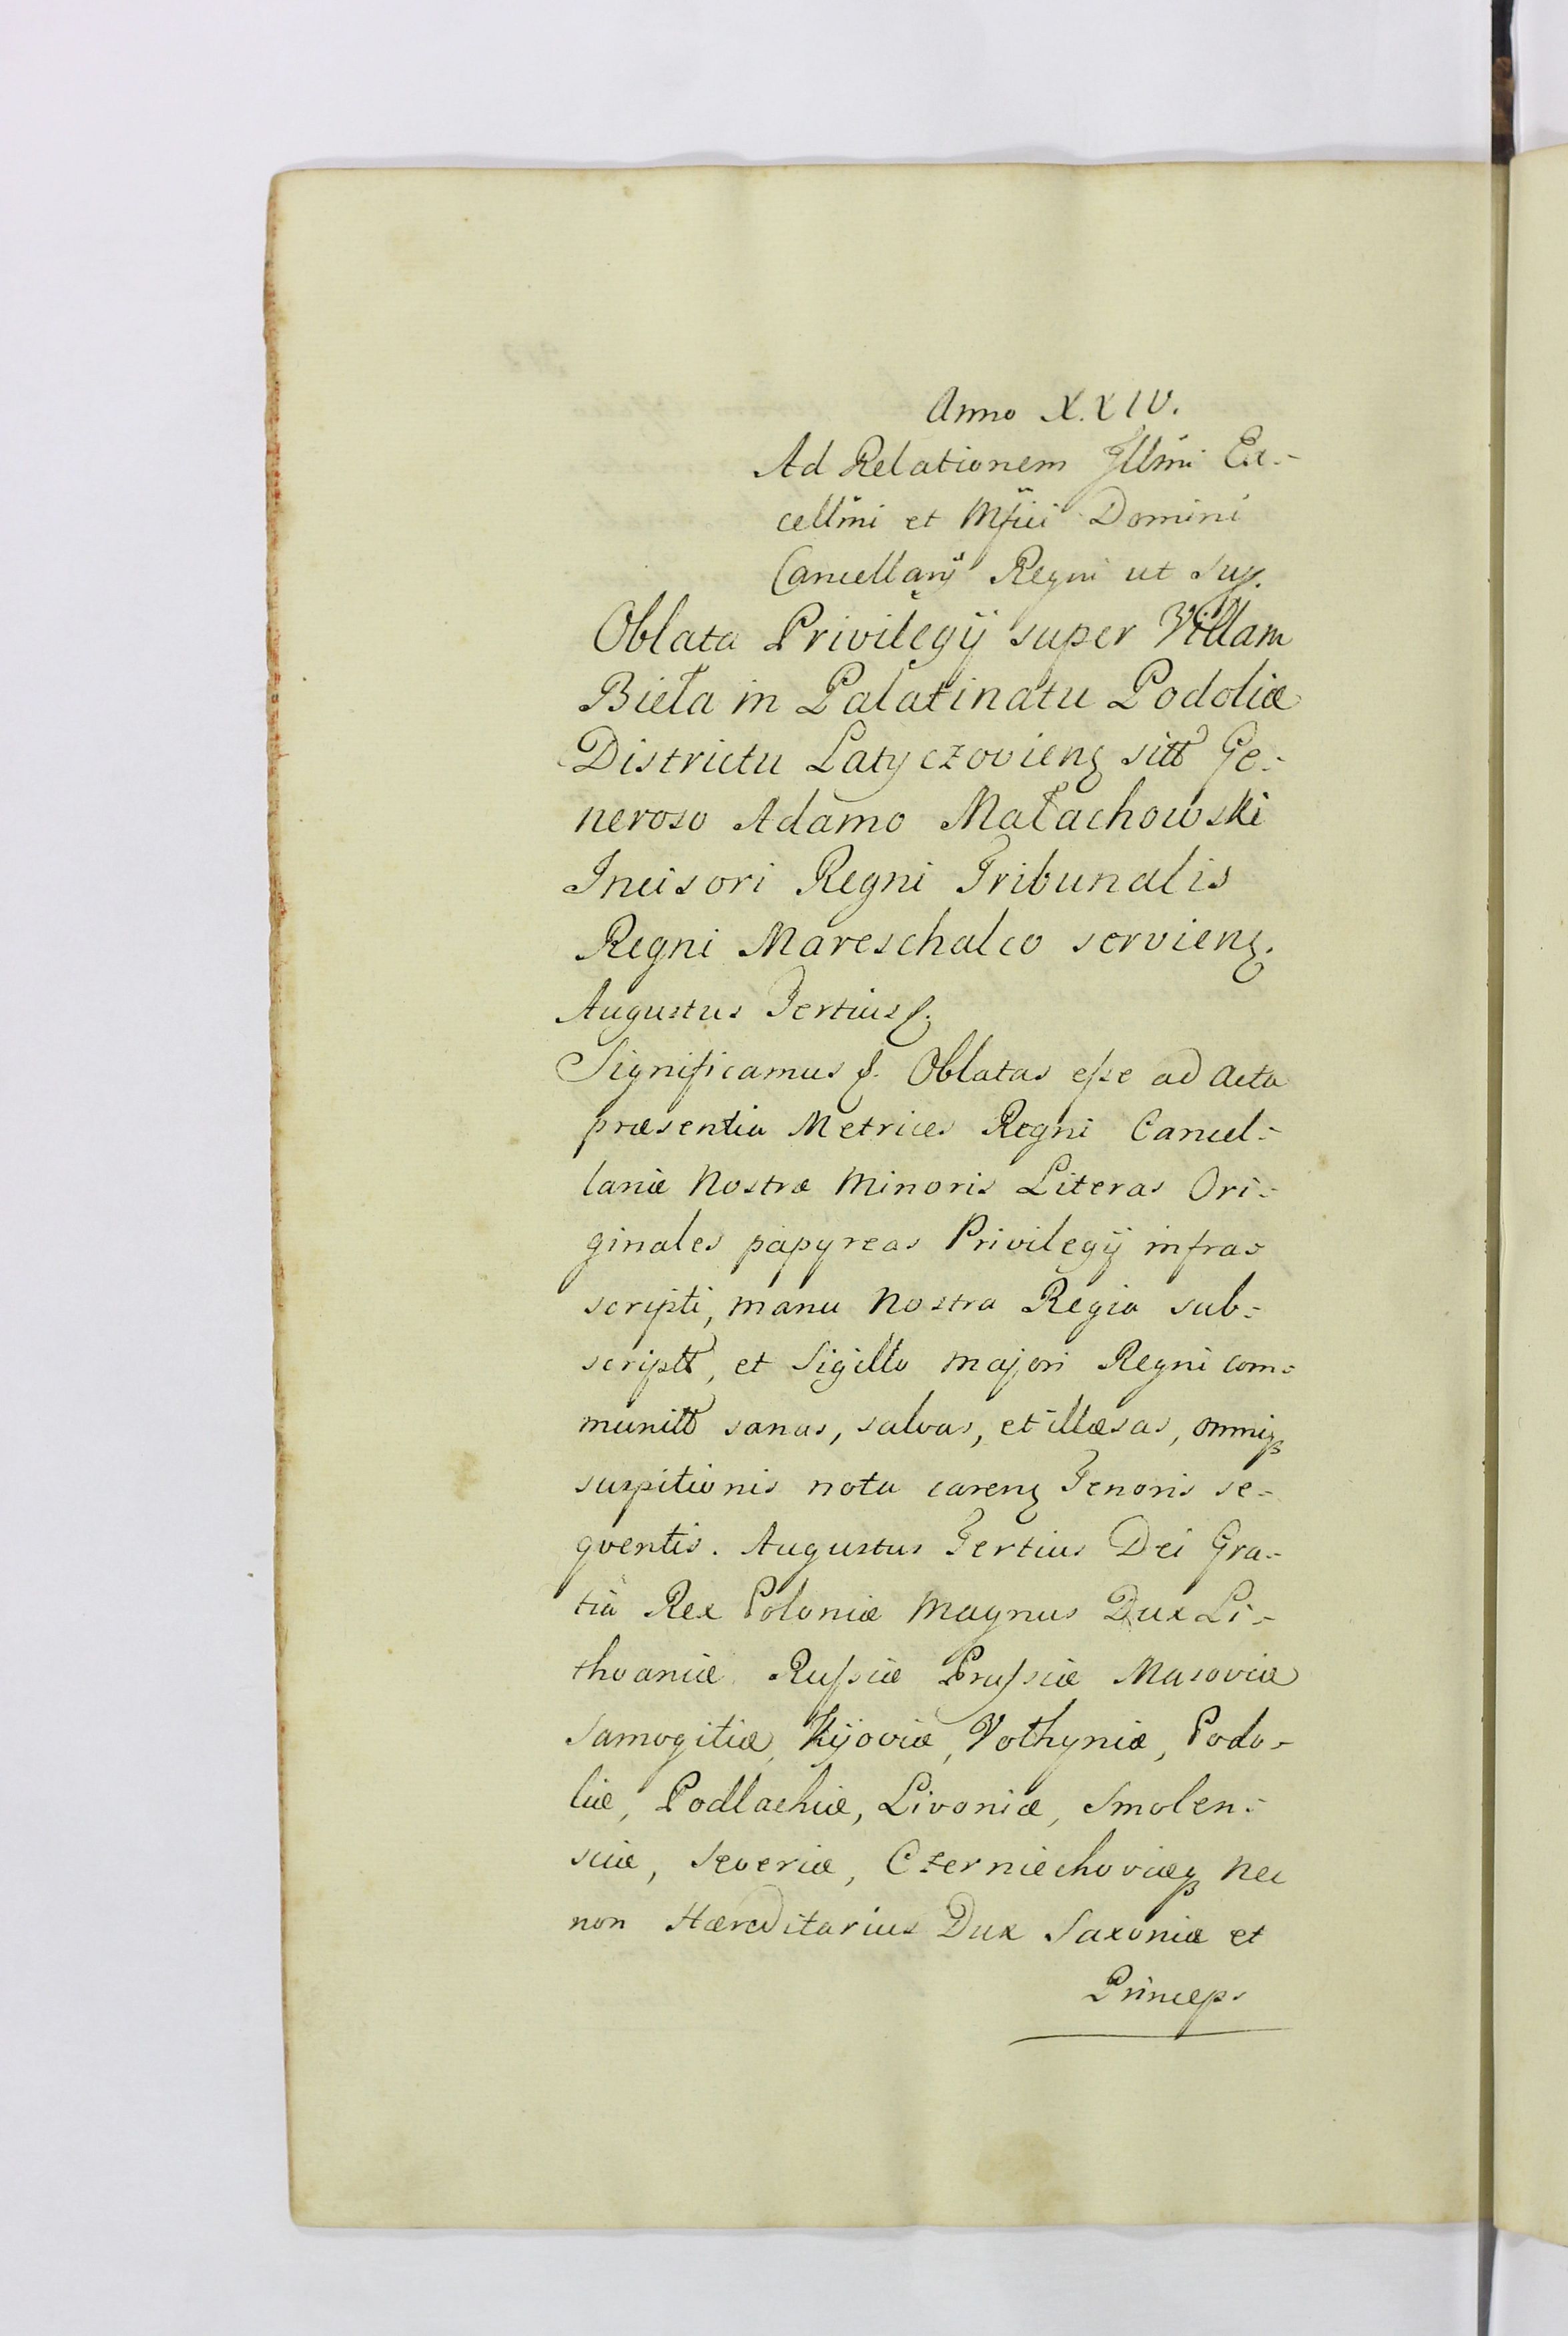 Anno X.XIV.
Ad Relationem Jllmi Ex-
cellmi et Mfici Domini
Cancellarij Regni ut sup.
Oblata Privilegij super Villam
Bieła in Palatinatu Podoliæ
Districtu Latyczovienꝫ sitt Ge-
neroso Adamo Małachowski
Incisori Regni Tribunalis
Regni Mareschalco servienꝫ.
Augustus Tertius
Significamus Oblatas eſse ad Acta
præsentia Metrices Regni Cancel-
lariæ Nostræ Minoris Literas Ori-
ginales papyreas Privilegij infra-
scripti, manu Nostra Regia sub-
scriptt, et Sigillo majori Regni com-
munitt sanas, salvas, et illæsas, omniqꝫ
suspitionis nota carenꝫ Tenoris se-
qventis. Augustus Tertius Dei Gra-
tia Rex Poloniæ Magnus Dux Li-
thvaniæ Ruſsiæ Pruſsiæ Masoviæ
Samogitiæ, Kijoviæ, Volhyniæ, Podo-
liæ, Podlachiæ, Livoniæ, Smolen-
sciæ, Severiæ, Czerniechoviæqꝫ nec
non Hæreditarius Dux Saxoniæ et
Princeps